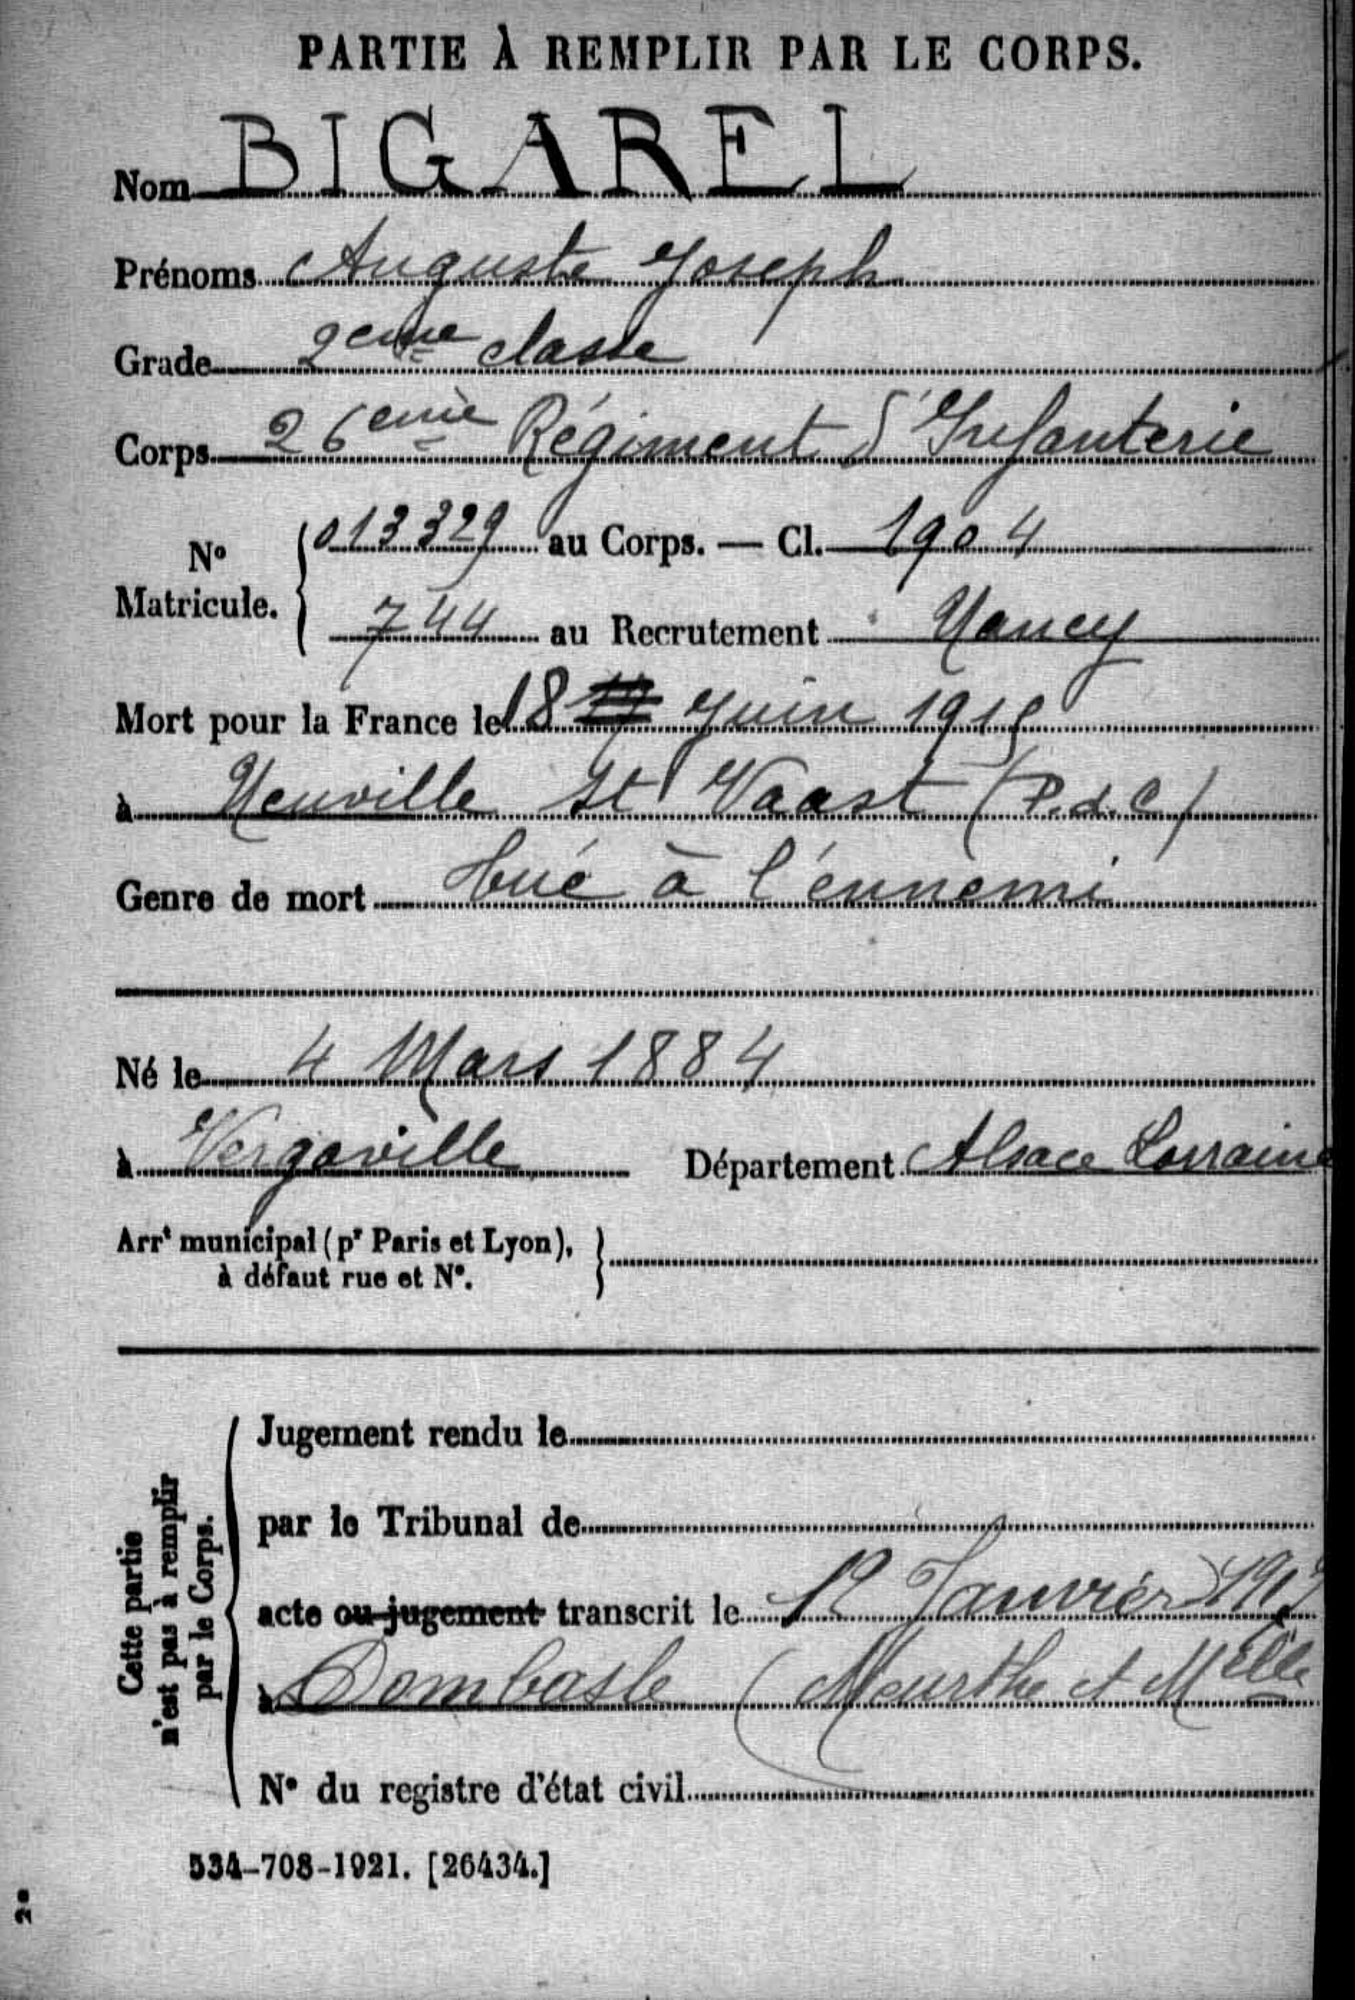 PARTIE À REMPLIR PAR LE CORPS.
Nom BIGAREL
Prénoms Auguste Joseph
Grade 2eme classe
Corps 26eme Régiment d'Infanterie
No Matricule. { 013329 au Corps. — Cl. 1904
744 au Recrutement Nancy
Mort pour la France le 18 Juin 1915
à Neuville St Vaast (P.d.C)
Genre de mort tué à l'énnemi
Né le 4 Mars 1884
à Vergaville Département Alsace Lorraine
Arrt municipal (pr Paris et Lyon), }
à défaut rue et N°.
Cette partie
n'est pas à remplir
par le Corps.
Jugement rendu le
par le Tribunal de
acte ou jugement transcrit le 12 Janvier
à Dombasle (Meurthe et Melle
N° du registre d'état civil
534-708-1921. [26434.]